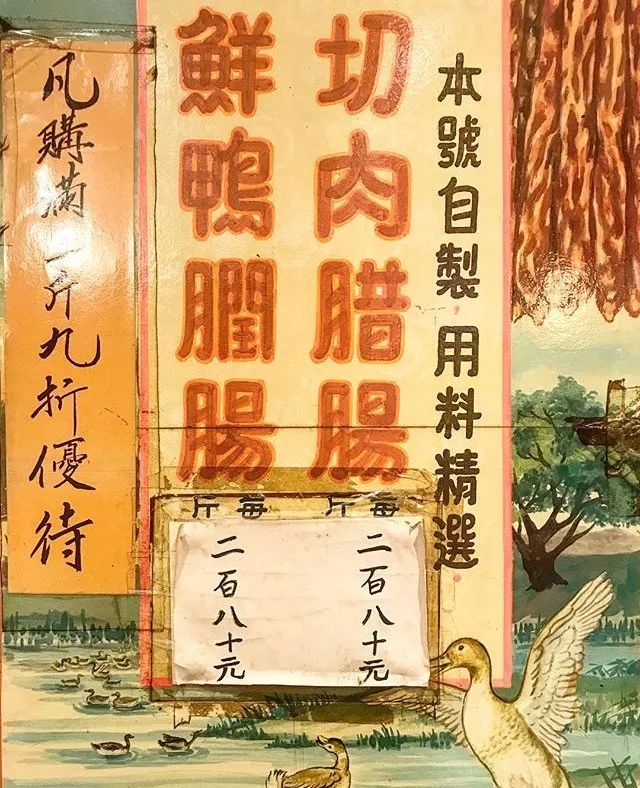 本號自製 用料精選
切肉腊腸
每斤
二百八十元
鮮鴨膶腸
每斤
二百八十元
凡購滿二斤九折優待